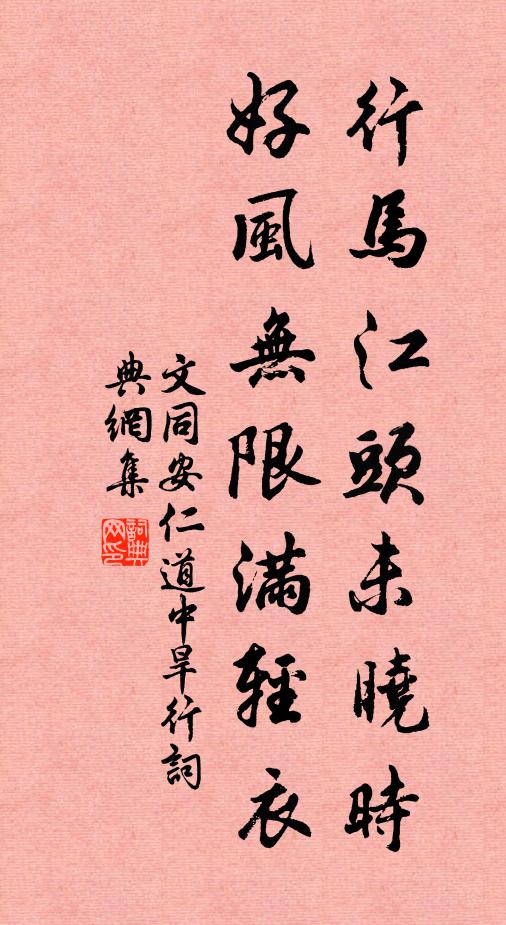 行馬江頭未曉時
好風無限滿輕衣
文同安仁道中旱行詞
典網集
詞典網印